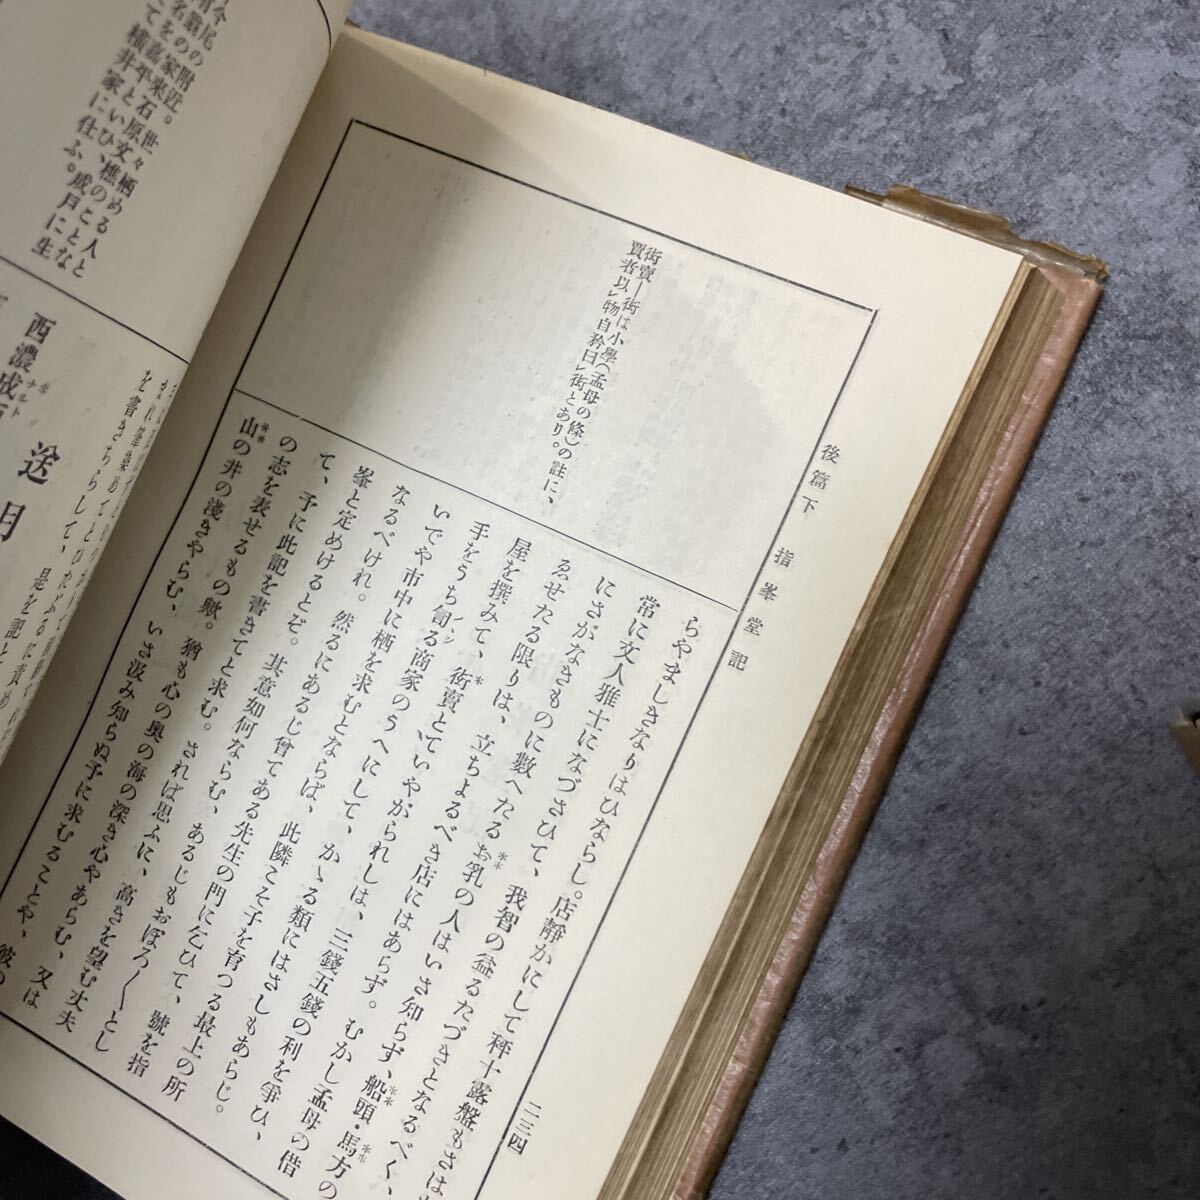 後篇下　指峯堂記
二三四
衒賣―衒は小學(孟母の條)の註に、
賈者以レ物自矜曰レ衒とあり。
らやましきなりはひならし。店靜かにして秤十露盤もさは
常に文人雅士になづさひて、我智の益るたづきとなるべく、
にさがなきものに數へたるお乳の人はいさ知らず、船頭・馬方の
ゑせたる限りは、立ちよるべき店にはあらず。むかし孟母の借
屋を撰みて、衒賣とていやがられしは、三錢五錢の利を爭ひ、
手をうち匐る商家のうへにして、かゝる類にはさしもあらじ。
いでや市中に栖を求むとならば、此隣こそ子を育つる最上の所
なるべけれ。然るにあるじ曾てある先生の門に乞ひて、號を指
峯と定めけるとぞ。其意如何ならむ、あるじもおぼろ〳〵とし
て、予に此記を書きてと求む。されば思ふに、高きを望む丈夫
の志を表せるもの歟。猶も心の奥の海の深き心やあらむ、又は
山の井の淺きやらむ、いさ汲み知らぬ予に求むることや、彼の
尾の附近。世々栖める人と
家來石原文樵のことな
嘉平といひ、
て横井家に仕ふ。戚月に生
西濃
送月
を書きちらして、是を記と